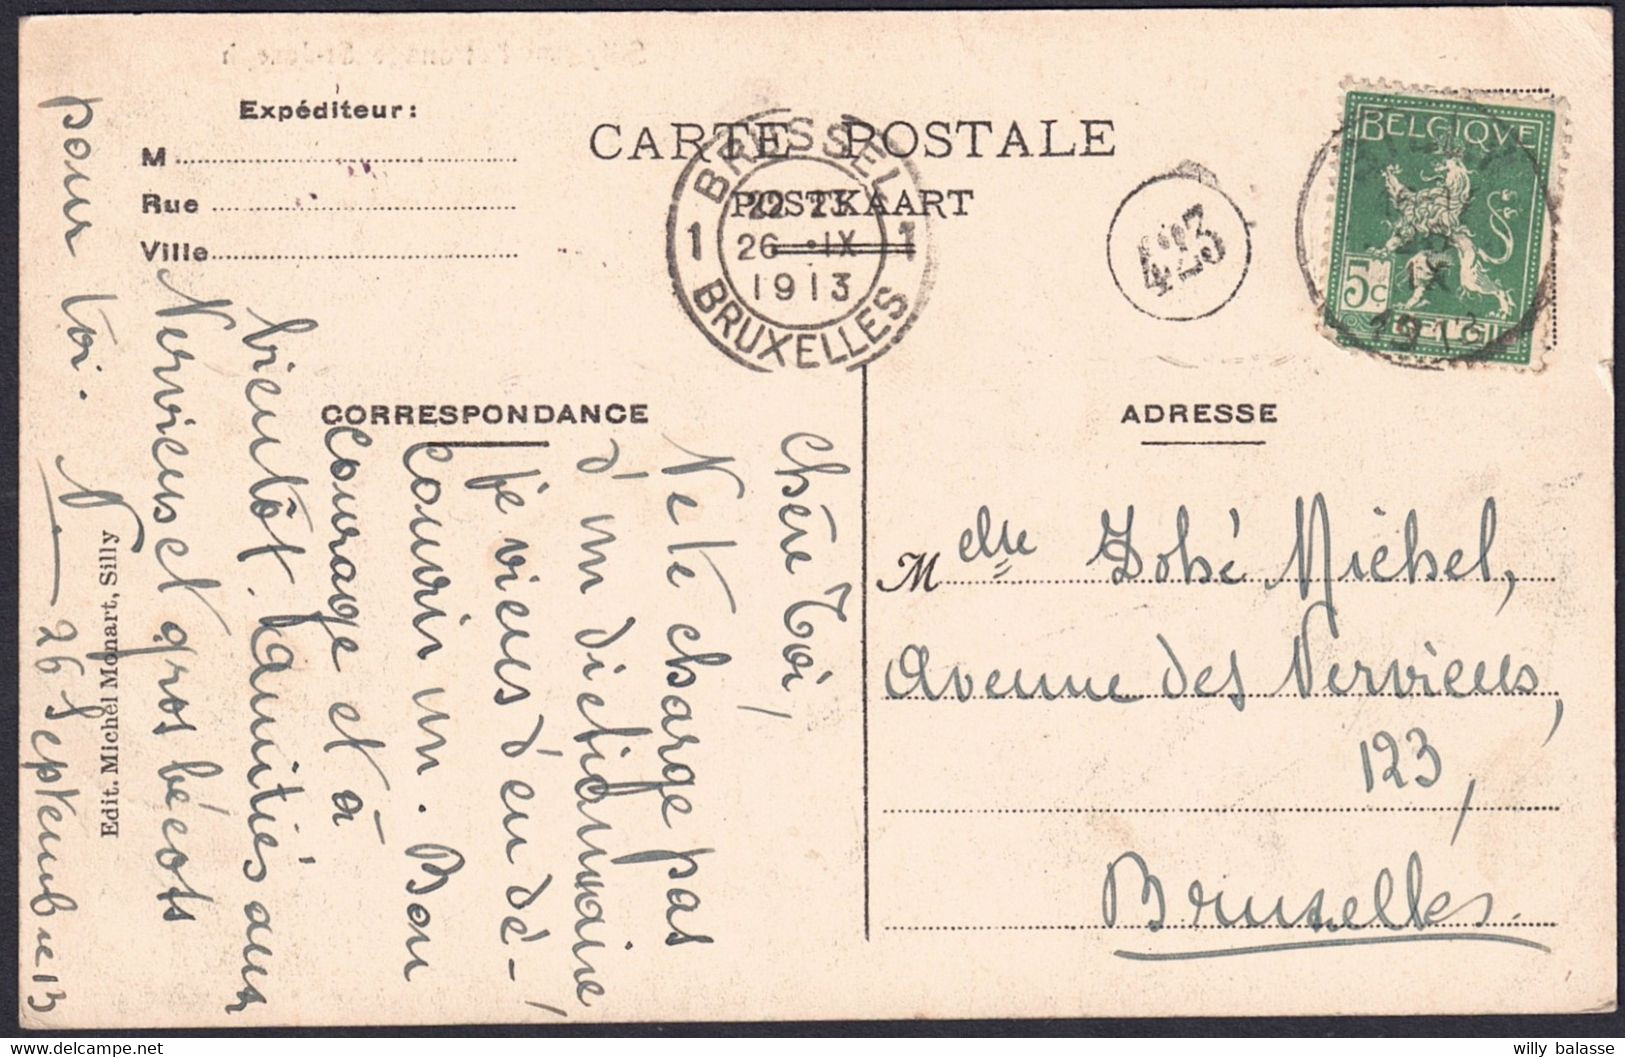 Expéditeur:
M
Rue
Ville
CARTE POSTALE
POSTKAART
BRUSSEL
1 1
26 IX
1913
BRUXELLES
423
BELGIQUE
5c
BELGIË
IX
1913
CORRESPONDANCE
Chère Toi,
Ne te charge pas
d'un dictionnaire
je viens d'en dé-
couvrir un. Bon
Courage et à
bientôt. Kamitiés aux
Nerviens et gros bécots
pour toi. N.
26 Septembre 13
Edit. Michel Monart, Silly
ADRESSE
Melle Zohé Michel,
Avenue des Nerviens,
123,
Bruxelles.
willy balasse